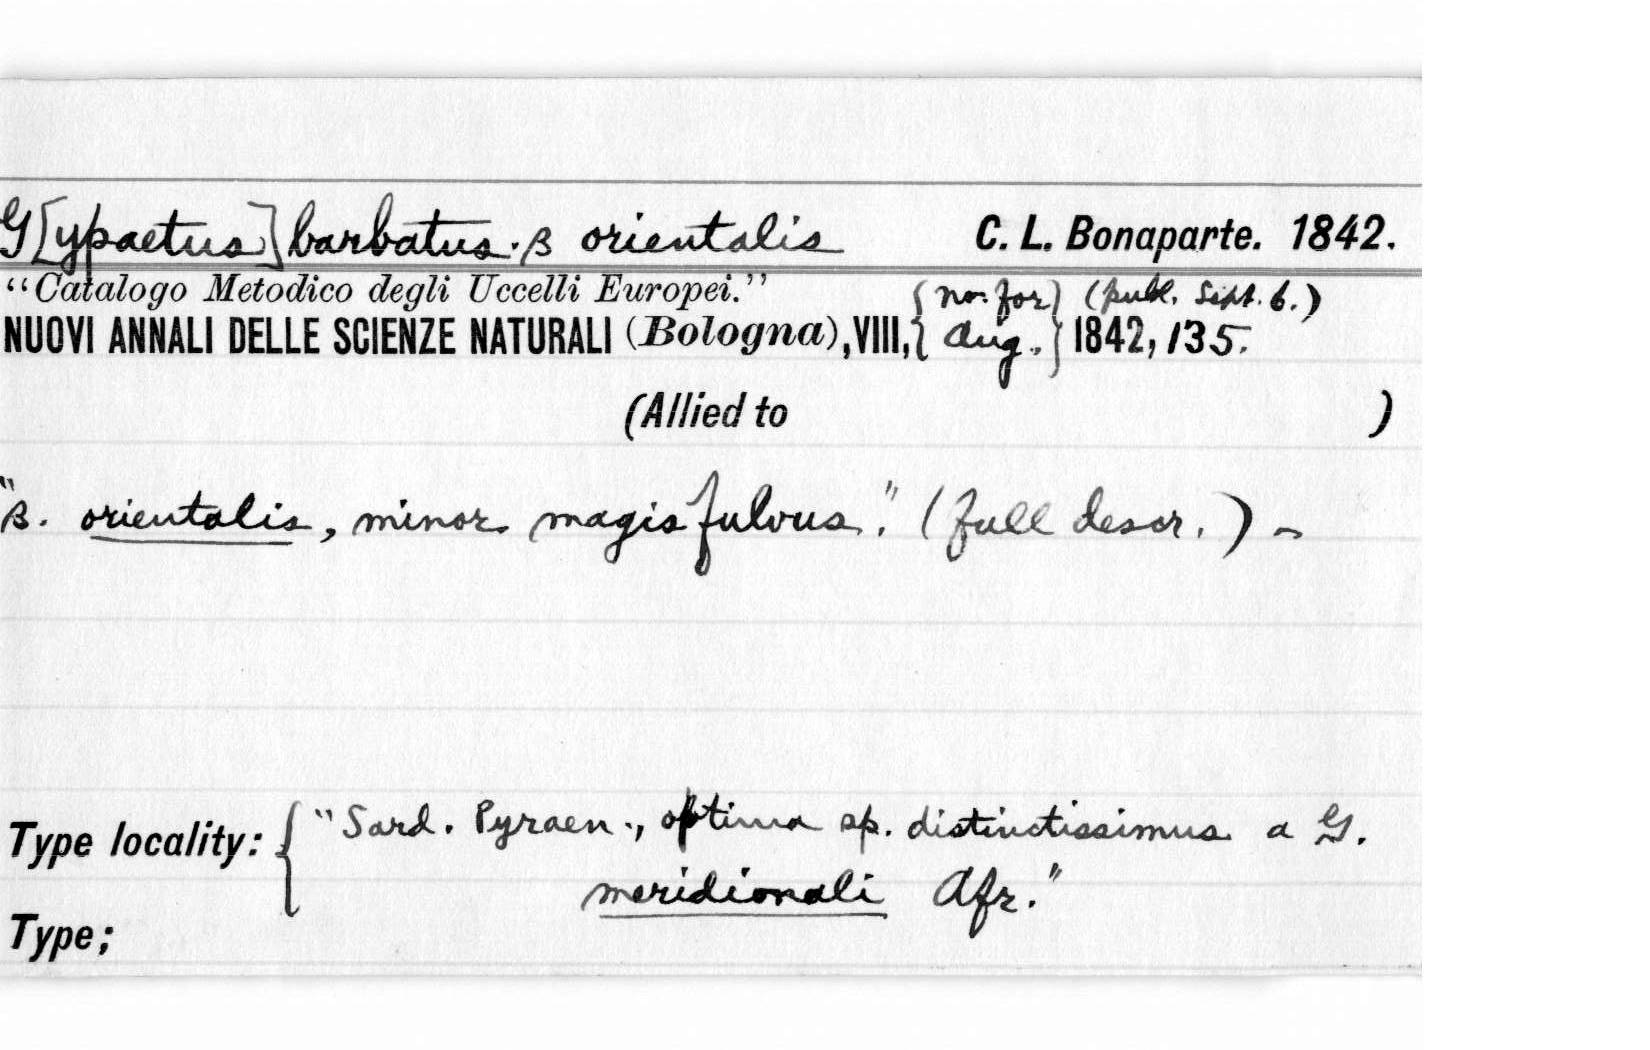 G[ypaetus] barbatus. β orientalis C. L. Bonaparte. 1842.
“Catalogo Metodico degli Uccelli Europei.” {no. for} (publ. Sept. 6.)
NUOVI ANNALI DELLE SCIENZE NATURALI (Bologna), VIII, {Aug.} 1842, 135.
(Allied to )
"β. orientalis, minor magis fulvus." (full descr.) –
Type locality: { "Sard. Pyraen., optima sp. distinctissimus a G.
meridionali Afr."
Type;